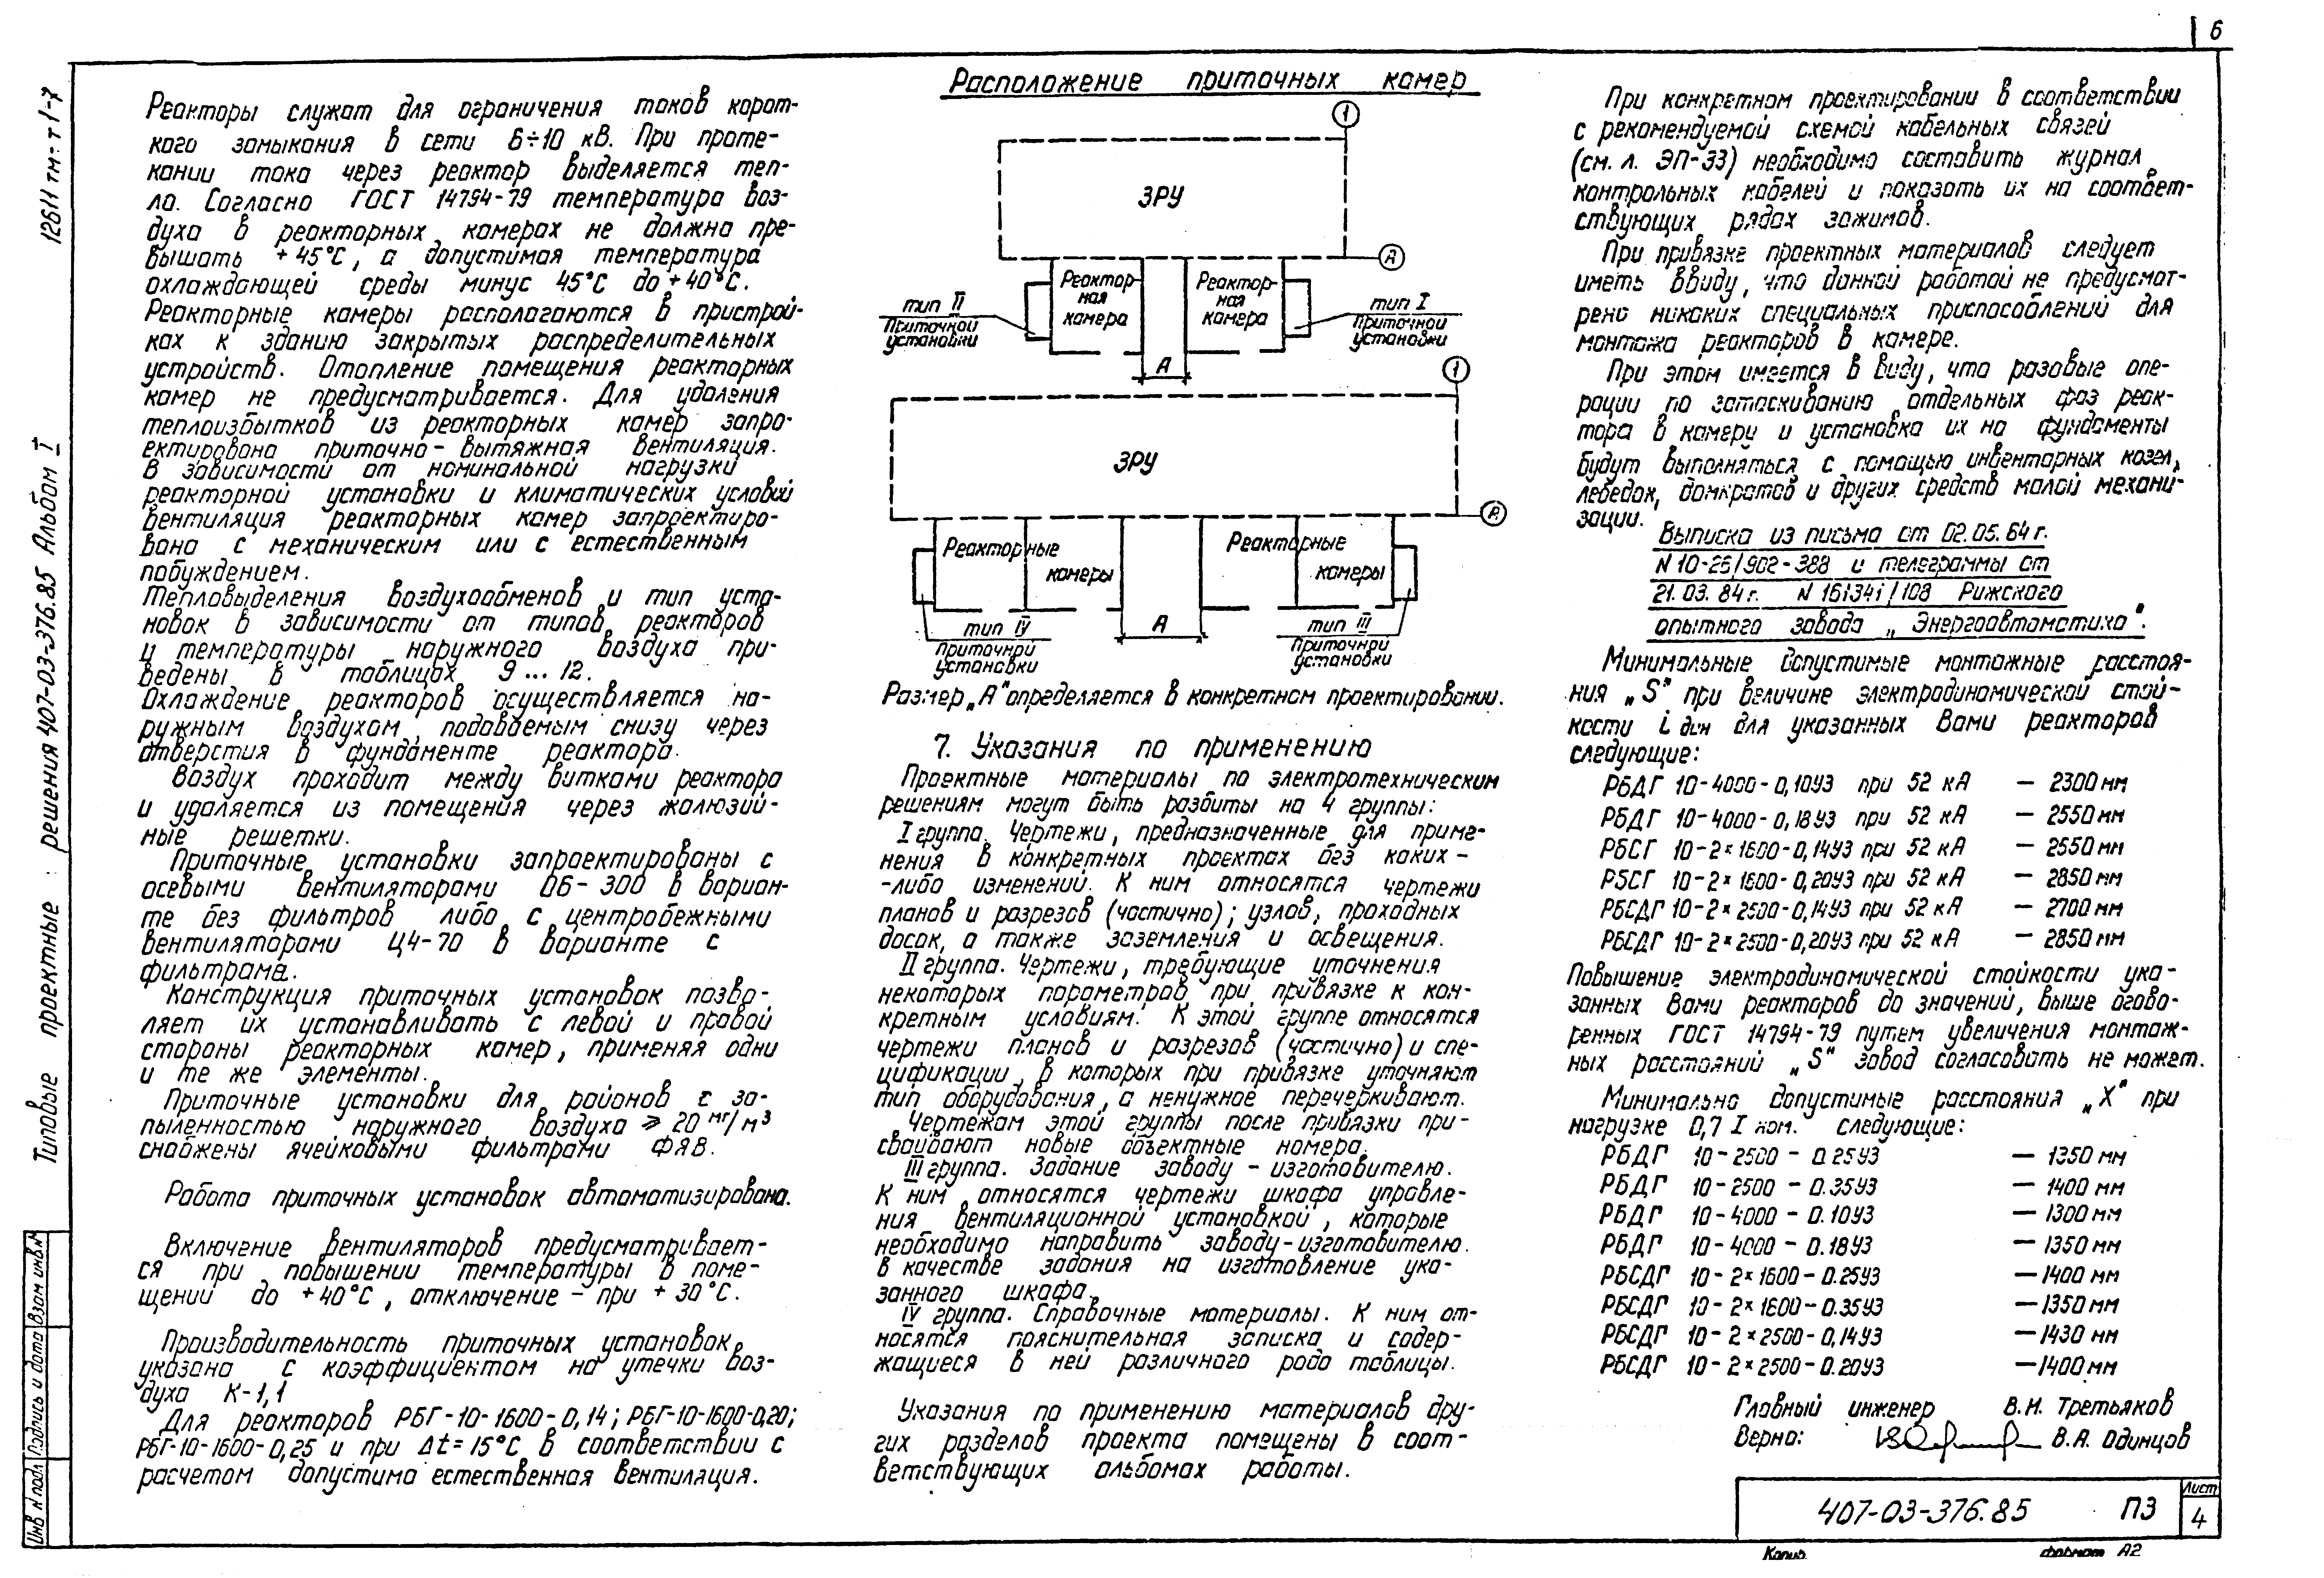 6
12611 тм-т1-7
Типовые проектные решения 407-03-376.85 Альбом I
Инв N подл Подпись и дата Взам инв.N
Реакторы служат для ограничения токов корот-
кого замыкания в сети 6÷10 кВ. При проте-
кании тока через реактор выделяется теп-
ло. Согласно ГОСТ 14794-79 температура воз-
духа в реакторных камерах не должна пре-
вышать +45°С, а допустимая температура
охлаждающей среды минус 45°С до +40°С.
Реакторные камеры располагаются в пристрой-
ках к зданию закрытых распределительных
устройств. Отопление помещения реакторных
камер не предусматривается. Для удаления
теплоизбытков из реакторных камер запро-
ектирована приточно-вытяжная вентиляция.
В зависимости от номинальной нагрузки
реакторной установки и климатических условий
вентиляция реакторных камер запроектиро-
вана с механическим или с естественным
побуждением.
Тепловыделения воздухообменов и тип уста-
новок в зависимости от типов реакторов
и температуры наружного воздуха при-
ведены в таблицах 9...12.
Охлаждение реакторов осуществляется на-
ружным воздухом, подаваемым снизу через
отверстия в фундаменте реактора.
Воздух проходит между витками реактора
и удаляется из помещения через жалюзий-
ные решетки.
Приточные установки запроектированы с
осевыми вентиляторами 06-300 в вариан-
те без фильтров либо с центробежными
вентиляторами Ц4-70 в варианте с
фильтрами.
Конструкция приточных установок позво-
ляет их устанавливать с левой и правой
стороны реакторных камер, применяя одни
и те же элементы.
Приточные установки для районов с за-
пыленностью наружного воздуха ⩾ 20 мг/м³
снабжены ячейковыми фильтрами ФЯВ.
Работа приточных установок автоматизирована.
Включение вентиляторов предусматривает-
ся при повышении температуры в поме-
щении до +40°С, отключение - при +30°С.
Производительность приточных установок
указана с коэффициентом на утечки воз-
духа К-1,1
Для реакторов РБГ-10-1600-0,14; РБГ-10-1600-0,20;
РБГ-10-1600-0,25 и при Δt=15°С в соответствии с
расчетом допустима естественная вентиляция.
Расположение приточных камер
1
ЗРУ
А
Реактор-
ная
камера
Реактор-
ная
камера
тип II
приточной
установки
тип I
приточной
установки
А
1
ЗРУ
А
Реакторные
камеры
Реакторные
камеры
тип IV
приточной
установки
А
тип III
приточной
установки
Размер „А" определяется в конкретном проектировании.
7. Указания по применению
Проектные материалы по электротехническим
решениям могут быть разбиты на 4 группы:
I группа. Чертежи, предназначенные для приме-
нения в конкретных проектах без каких-
-либо изменений. К ним относятся чертежи
планов и разрезов (частично); узлов, проходных
досок, а также заземления и освещения.
II группа. Чертежи, требующие уточнения
некоторых параметров при привязке к кон-
кретным условиям. К этой группе относятся
чертежи планов и разрезов (частично) и спе-
цификации, в которых при привязке уточняют
тип оборудования, а ненужное перечеркивают.
Чертежам этой группы после привязки при-
сваивают новые объектные номера.
III группа. Задание заводу - изготовителю.
К ним относятся чертежи шкафа управле-
ния вентиляционной установкой, которые
необходимо направить заводу-изготовителю.
в качестве задания на изготовление ука-
занного шкафа.
IV группа. Справочные материалы. К ним от-
носятся пояснительная записка и содер-
жащиеся в ней различного рода таблицы.
Указания по применению материалов дру-
гих разделов проекта помещены в соот-
ветствующих альбомах работы.
При конкретном проектировании в соответствии
с рекомендуемой схемой кабельных связей
(см. л. ЭП-33) необходимо составить журнал
контрольных кабелей и показать их на соответ-
ствующих рядах зажимов.
При привязке проектных материалов следует
иметь ввиду, что данной работой не предусмот-
рено никаких специальных приспособлений для
монтажа реакторов в камере.
При этом имеется в виду, что разовые опе-
рации по затаскиванию отдельных фаз реак-
тора в камеру и установка их на фундаменты
будут выполняться с помощью инвентарных козел,
лебедок, домкратов и других средств малой механи-
зации.
Выписка из письма от 02.05.64 г.
N 10-26/902-388 и телеграммы от
21.03.84 г. N 161341/108 Рижского
опытного завода „Энергоавтоматика".
Минимальные допустимые монтажные расстоя-
ния „S" при величине электродинамической стой-
кости i дин для указанных Вами реакторов
следующие:
РБДГ 10-4000-0,10У3 при 52 кА — 2300 мм
РБДГ 10-4000-0,18У3 при 52 кА — 2550 мм
РБСГ 10-2×1600-0,14У3 при 52 кА — 2550 мм
РБСГ 10-2×1600-0,20У3 при 52 кА — 2850 мм
РБСДГ 10-2×2500-0,14У3 при 52 кА — 2700 мм
РБСДГ 10-2×2500-0,20У3 при 52 кА — 2850 мм
Повышение электродинамической стойкости ука-
занных Вами реакторов до значений, выше огово-
ренных ГОСТ 14794-79 путем увеличения монтаж-
ных расстояний „S" завод согласовать не может.
Минимально допустимые расстояния „X" при
нагрузке 0,7 I ном. следующие:
РБДГ 10-2500-0.25У3 — 1350 мм
РБДГ 10-2500-0.35У3 — 1400 мм
РБДГ 10-4000-0.10У3 — 1300 мм
РБДГ 10-4000-0.18У3 — 1350 мм
РБСДГ 10-2×1600-0.25У3 — 1400 мм
РБСДГ 10-2×1600-0.35У3 — 1350 мм
РБСДГ 10-2×2500-0,14У3 — 1430 мм
РБСДГ 10-2×2500-0.20У3 — 1400 мм
Главный инженер В.И. Третьяков
Верно: В.А. Одинцов
407-03-376.85 ПЗ
Лист
4
Копир. формат А2